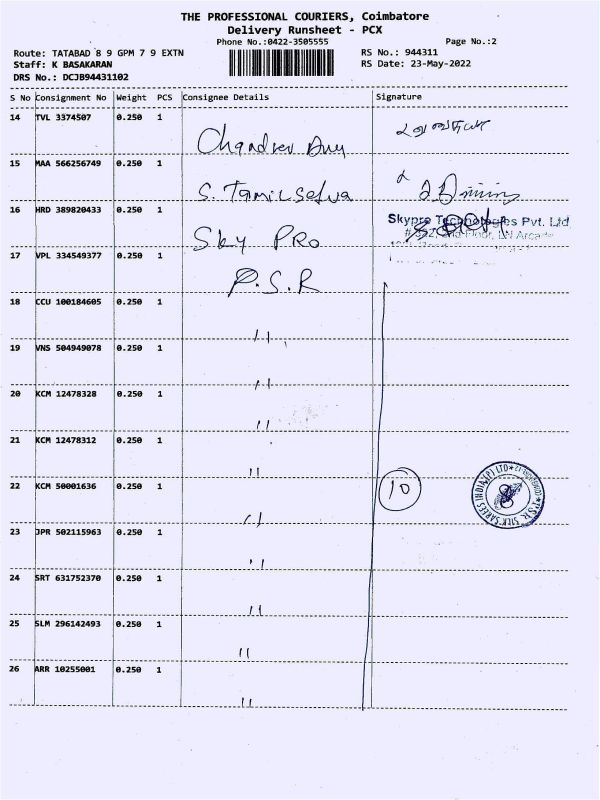 THE PROFESSIONAL COURIERS, Coimbatore
Delivery Runsheet - PCX
Phone No.:0422-3505555 Page No.:2
Route: TATABAD 8 9 GPM 7 9 EXTN RS No.: 944311
Staff: K BASAKARAN RS Date: 23-May-2022
DRS No.: DCJB94431102
S No Consignment No Weight PCS Consignee Details Signature
14 TVL 3374507 0.250 1
15 MAA 566256749 0.250 1
S. Tamilselva
16 HRD 389820433 0.250 1 Skypro Technologies Pvt. Ltd
Sky PRO
17 VPL 334549377 0.250 1
P.S.R
18 CCU 100184605 0.250 1
"
19 VNS 504949078 0.250 1
"
20 KCM 12478328 0.250 1
"
21 KCM 12478312 0.250 1
"
22 KCM 50001636 0.250 1 10 P.S.R. SILK SAREES INDIA (P) LTD
"
23 JPR 502115963 0.250 1
"
24 SRT 631752370 0.250 1
"
25 SLM 296142493 0.250 1
"
26 ARR 10255001 0.250 1
"